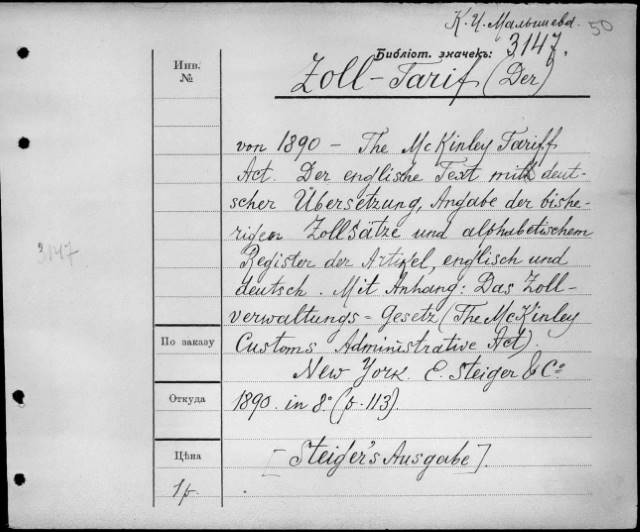 К. И. Малышева.
50
Библіот. значекъ: 3147.
Инв.
№
Zoll-Tarif (Der)
von 1890 - The McKinley Tariff
Act. Der englishe Text mit deut-
scher Übersetzung, Angabe der bishe-
rigen Zollsätze und alphabetischem
3147
Register der Artikel, englisch und
deutsch. Mit Anhang: Das Zoll-
verwaltungs = Gesetz (The McKinley
По заказу
Customs Administrative Act).
New York. E. Steiger & Co
Откуда
1890. in 8° (p. 113).
Цѣна
[Steiger's Ausgabe].
1 р.